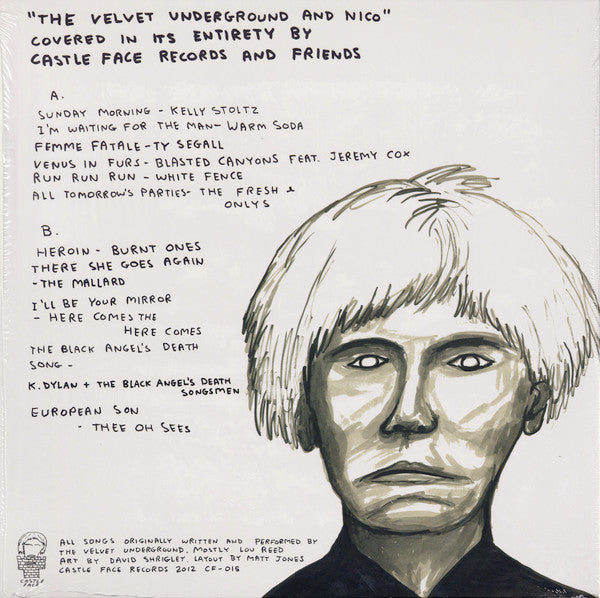 "THE VELVET UNDERGROUND AND NICO"
COVERED IN ITS ENTIRETY BY
CASTLE FACE RECORDS AND FRIENDS
A.
SUNDAY MORNING - KELLY STOLTZ
I'M WAITING FOR THE MAN- WARM SODA
FEMME FATALE - TY SEGALL
VENUS IN FURS - BLASTED CANYONS FEAT. JEREMY COX
RUN RUN RUN - WHITE FENCE
ALL TOMORROW'S PARTIES- THE FRESH &
ONLYS
B.
HEROIN - BURNT ONES
THERE SHE GOES AGAIN
- THE MALLARD
I'LL BE YOUR MIRROR
- HERE COMES THE
HERE COMES
THE BLACK ANGEL'S DEATH
SONG -
K. DYLAN + THE BLACK ANGEL'S DEATH
SONGSMEN
EUROPEAN SON
- THEE OH SEES
ALL SONGS ORIGINALLY WRITTEN AND PERFORMED BY
THE VELVET UNDERGROUND, MOSTLY LOU REED
ART BY DAVID SHRIGLEY, LAYOUT BY MATT JONES
CASTLE FACE RECORDS 2012 CF-018
CASTLE
FACE